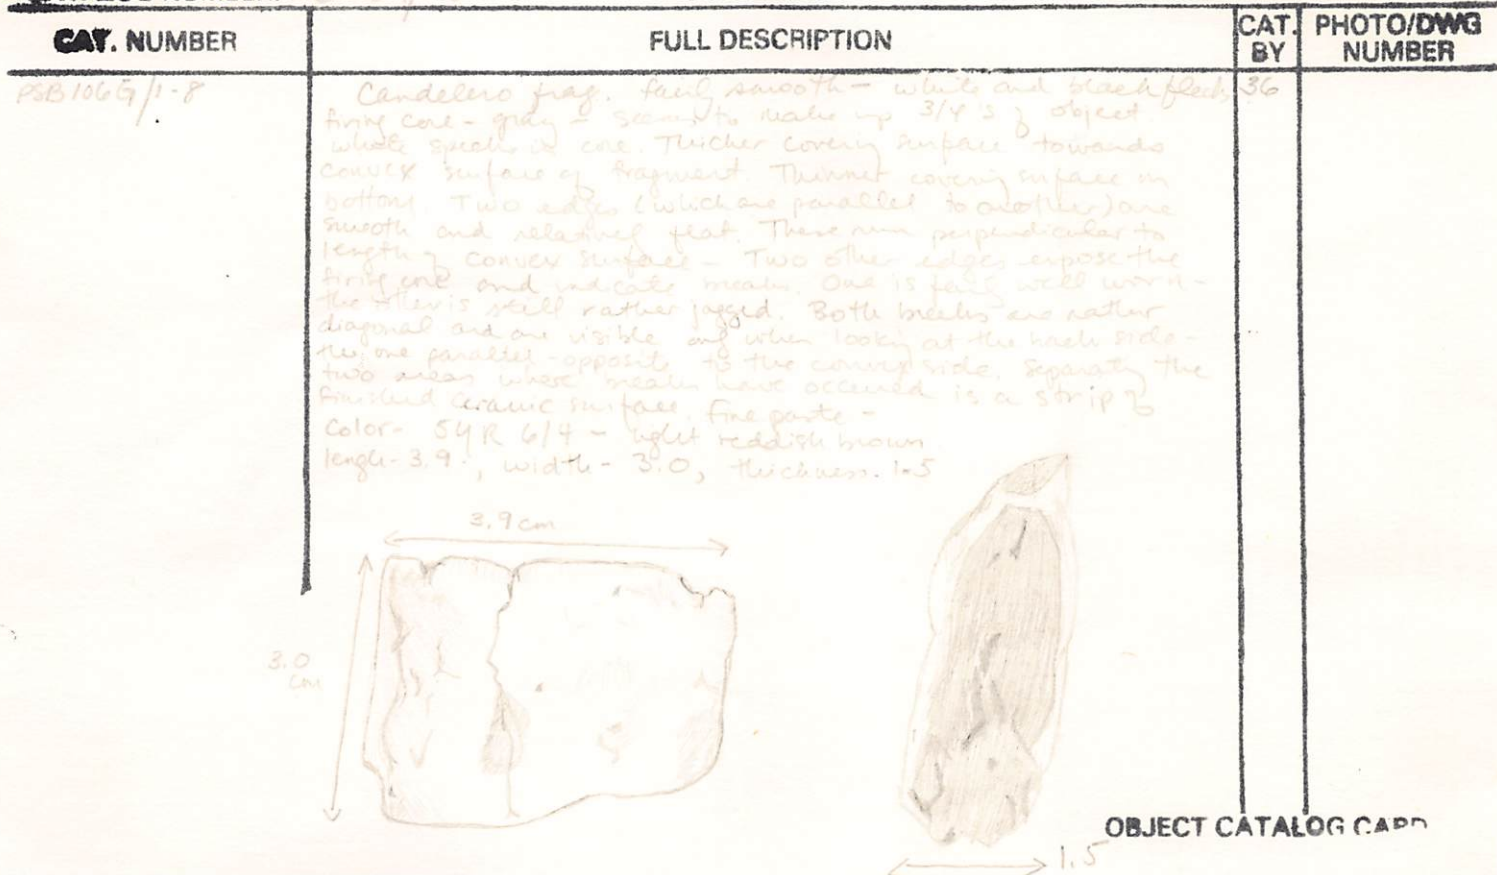 CAT. NUMBER
FULL DESCRIPTION
CAT. BY
PHOTO/DWG NUMBER
PSB106G/1-8
Candelero frag. fairly smooth - white and black flecks
36
firing core - gray - seems to make up 3/4's of object
white specks in core. Thicker covering surface towards
convex surface of fragment. Thinner covering surface on
bottom. Two edges (which are parallel to another) are
smooth and relatively flat. These run perpendicular to
length of convex surface - Two other edges expose the
firing core and indicate breaks. One is fairly well worn -
the other is still rather jagged. Both breaks are rather
diagonal and are visible only when looking at the back side -
the one parallel-opposite to the convex side. Separating the
two areas where breaks have occurred is a strip of
finished ceramic surface. Fine paste -
Color - 5YR 6/4 - light reddish brown
length - 3.9, width - 3.0, thickness - 1.5
3.9 cm
3.0 cm
OBJECT CATALOG CARD
1.5